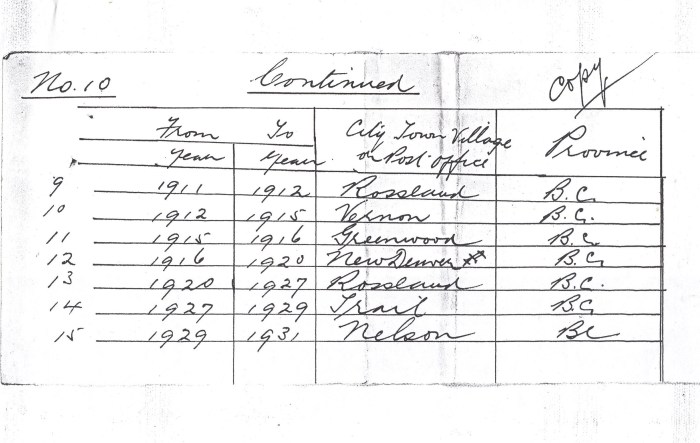 No. 10 Continued Copy
From To City Town Village Province
Year Year or Post Office
9 1911 1912 Rossland B.C.
10 1912 1915 Vernon B.C.
11 1915 1916 Greenwood B.C.
12 1916 1920 New Denver * B.C.
13 1920 1927 Rossland B.C.
14 1927 1929 Trail B.C.
15 1929 1931 Nelson BC